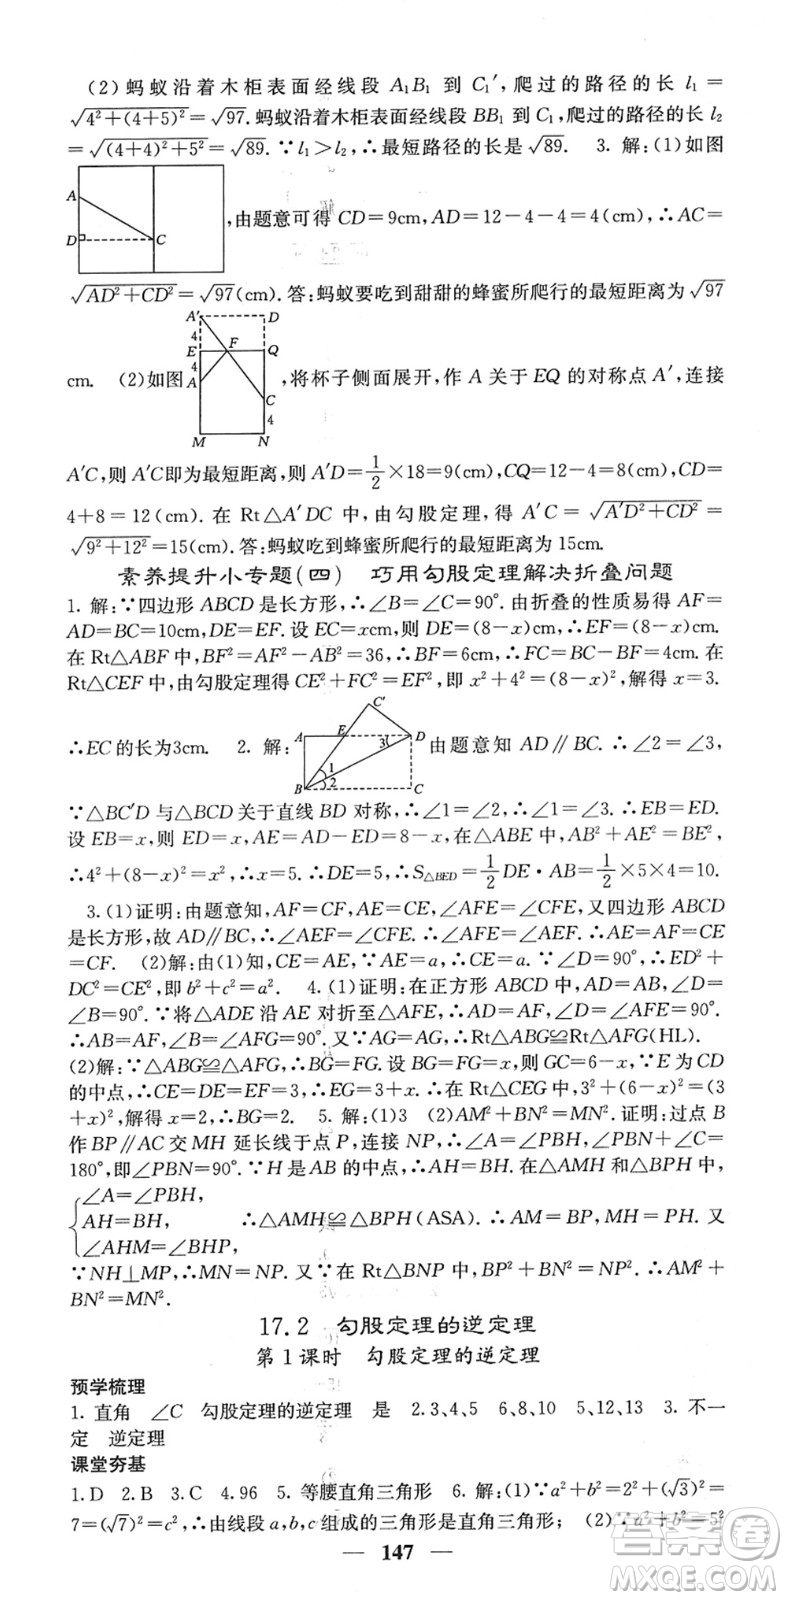 (2)蚂蚁沿着木柜表面经线段 A₁B₁ 到 C₁′,爬过的路径的长 l₁=
√(4²+(4+5)²)=√97.蚂蚁沿着木柜表面经线段 BB₁ 到 C₁,爬过的路径的长 l₂
=√((4+4)²+5²)=√89.∵l₁>l₂,∴最短路径的长是√89. 3. 解:(1)如图
A
D
C
,由题意可得 CD=9cm,AD=12-4-4=4(cm),∴AC=
√(AD²+CD²)=√97(cm).答:蚂蚁要吃到甜甜的蜂蜜所爬行的最短距离为√97
A′ D
4
E F Q
4
A
C
4
M N
cm. (2)如图,将杯子侧面展开,作 A 关于 EQ 的对称点 A′,连接
A′C,则 A′C即为最短距离,则 A′D=1/2×18=9(cm),CQ=12-4=8(cm),CD=
4+8=12(cm).在 Rt△A′DC 中,由勾股定理,得 A′C=√(A′D²+CD²)=
√(9²+12²)=15(cm).答:蚂蚁吃到蜂蜜所爬行的最短距离为 15cm.
素养提升小专题(四) 巧用勾股定理解决折叠问题
1. 解:∵四边形 ABCD 是长方形,∴∠B=∠C=90°.由折叠的性质易得 AF=
AD=BC=10cm,DE=EF.设 EC=xcm,则 DE=(8-x)cm,∴EF=(8-x)cm.
在 Rt△ABF 中,BF²=AF²-AB²=36,∴BF=6cm,∴FC=BC-BF=4cm.在
Rt△CEF 中,由勾股定理得 CE²+FC²=EF²,即 x²+4²=(8-x)²,解得 x=3.
C′
A E D
3
1
2
B C
∴EC 的长为3cm. 2. 解:由题意知 AD∥BC.∴∠2=∠3,
∵△BC′D 与△BCD 关于直线 BD 对称,∴∠1=∠2,∴∠1=∠3.∴EB=ED.
设 EB=x,则 ED=x,AE=AD-ED=8-x,在△ABE 中,AB²+AE²=BE²,
∴4²+(8-x)²=x²,∴x=5.∴DE=5,∴S△BED=1/2DE·AB=1/2×5×4=10.
3.(1)证明:由题意知,AF=CF,AE=CE,∠AFE=∠CFE,又四边形 ABCD
是长方形,故 AD∥BC,∴∠AEF=∠CFE.∴∠AFE=∠AEF.∴AE=AF=CE
=CF. (2)解:由(1)知,CE=AE,∴CE=a.∵∠D=90°,∴ED²+
DC²=CE²,即 b²+c²=a². 4.(1)证明:在正方形 ABCD 中,AD=AB,∠D=
∠B=90°.∵将△ADE 沿 AE 对折至△AFE,∴AD=AF,∠D=∠AFE=90°.
∴AB=AF,∠B=∠AFG=90°.又∵AG=AG,∴Rt△ABG≌Rt△AFG(HL).
(2)解:∵△ABG≌△AFG,∴BG=FG.设 BG=FG=x,则GC=6-x,∵E为 CD
的中点,∴CE=DE=EF=3,∴EG=3+x.∴在 Rt△CEG 中,3²+(6-x)²=(3
+x)²,解得 x=2,∴BG=2. 5. 解:(1)3 (2)AM²+BN²=MN².证明:过点 B
作 BP∥AC 交 MH 延长线于点 P,连接 NP,∴∠A=∠PBH,∠PBN+∠C=
180°,即∠PBN=90°.∵H 是 AB 的中点,∴AH=BH.在△AMH 和△BPH 中,
∠A=∠PBH,
AH=BH, ∴△AMH≌△BPH(ASA).∴AM=BP,MH=PH.又
∠AHM=∠BHP,
∵NH⊥MP,∴MN=NP.∵BP²+BN²=NP²,∴在 Rt△BNP 中,∴AM²+
BN²=MN².
17.2 勾股定理的逆定理
第 1 课时 勾股定理的逆定理
预学梳理
1. 直角 ∠C 勾股定理的逆定理 是 2.3、4、5 6、8、10 5、12、13 3. 不一
定 逆定理
课堂夯基
1.D 2.B 3.C 4.96 5. 等腰直角三角形 6. 解:(1)∵a²+b²=2²+(√3)²=
7=(√7)²=c²,∴由线段 a,b,c 组成的三角形是直角三角形; (2)∵a²+b²=5²
— 147 —
答案圈
MXQE.COM